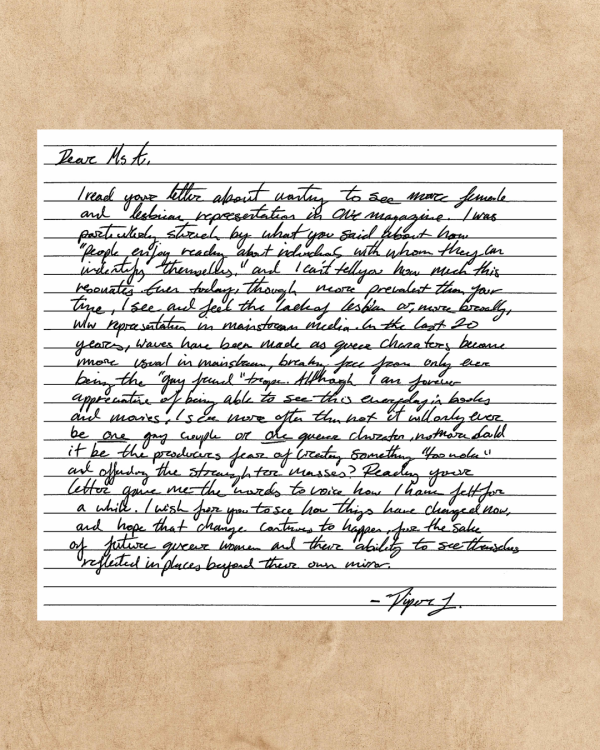 Dear Ms A,
I read your letter about wanting to see more female
and lesbian representation in ONE magazine. I was
particularly struck by what you said about how
"people enjoy reading about individuals with whom they can
indentify themselves," and I can't tell you how much this
resonates. Even today, though more prevalent than your
time, I see and feel the lack of lesbian or, more broadly,
wlw representation in mainstream media. In the last 20
years, waves have been made as queer charaters become
more usual in mainstream, breaking free from only ever
being the "gay friend" trope. Although I am forever
appreciative of being able to see this everyday in books
and movies, I see more often than not it will only ever
be one gay couple or one queer charater, not more. Could
it be the producers fear of creating something "too queer"
and offending the straighter masses? Reading your
letter gave me the words to voice how I have felt for
a while. I wish for you to see how things have changed now,
and hope that change continues to happen, for the sake
of future queer women and there ability to see themselves
reflected in places beyond there own mirror.
- L.